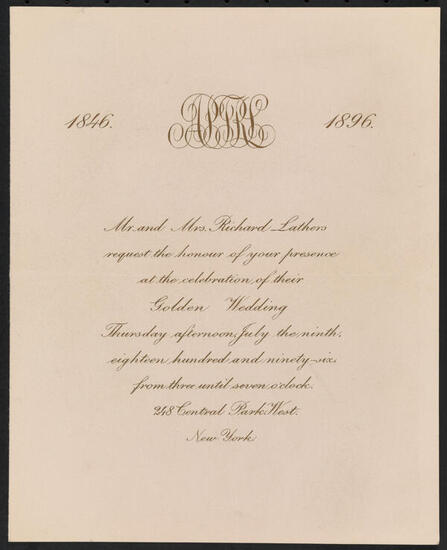 1846.
1896.
Mr. and Mrs. Richard Lathers
request the honour of your presence
at the celebration of their
Golden Wedding
Thursday afternoon, July the ninth,
eighteen hundred and ninety-six
from three until seven o'clock.
248 Central Park West.
New York